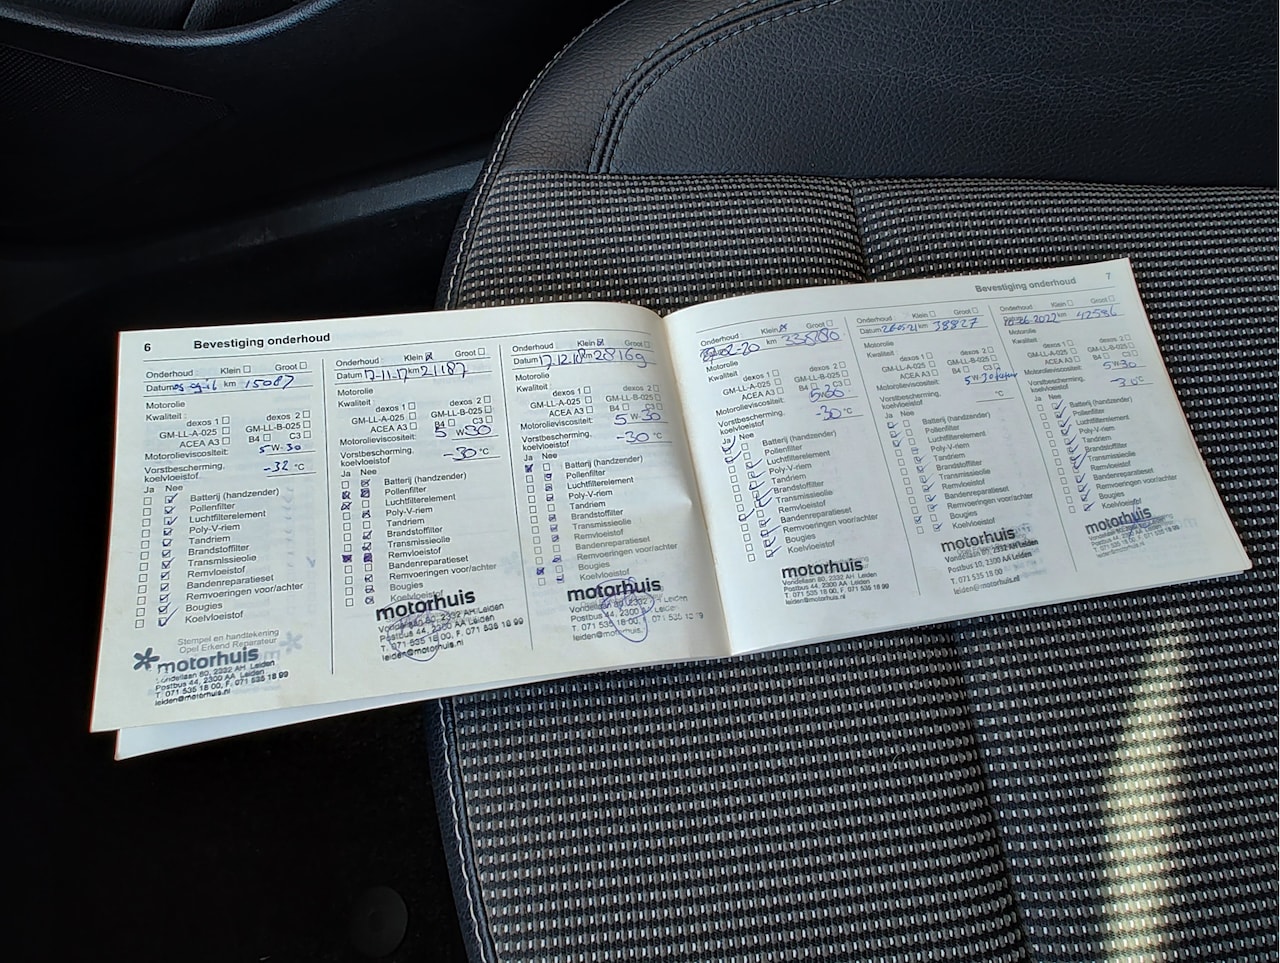 6 Bevestiging onderhoud
Onderhoud Klein Groot
Datum 05-9-16 km 15087
Motorolie
Kwaliteit : dexos 1 dexos 2
GM-LL-A-025 GM-LL-B-025
ACEA A3 B4 C3
Motorolieviscositeit: 5 W- 30
Vorstbescherming,
koelvloeistof -32 °C
Ja Nee
Batterij (handzender)
Pollenfilter
Luchtfilterelement
Poly-V-riem
Tandriem
Brandstoffilter
Transmissieolie
Remvloeistof
Bandenreparatieset
Remvoeringen voor/achter
Bougies
Koelvloeistof
Stempel en handtekening
Opel Erkend Reparateur
motorhuis
Vondellaan 80, 2332 AH Leiden
Postbus 44, 2300 AA Leiden
T. 071 535 18 00, F. 071 535 18 99
leiden@motorhuis.nl
Onderhoud Klein Groot
Datum 17-11-17 km 21187
Motorolie
Kwaliteit : dexos 1 dexos 2
GM-LL-A-025 GM-LL-B-025
ACEA A3 B4 C3
Motorolieviscositeit: 5 W 30
Vorstbescherming,
koelvloeistof -30 °C
Ja Nee
Batterij (handzender)
Pollenfilter
Luchtfilterelement
Poly-V-riem
Tandriem
Brandstoffilter
Transmissieolie
Remvloeistof
Bandenreparatieset
Remvoeringen voor/achter
Bougies
Koelvloeistof
motorhuis
Vondellaan 80, 2332 AH Leiden
Postbus 44, 2300 AA Leiden
T. 071 535 18 00, F. 071 535 18 99
leiden@motorhuis.nl
Onderhoud Klein Groot
Datum 17.12.18 km 28169
Motorolie
Kwaliteit : dexos 1 dexos 2
GM-LL-A-025 GM-LL-B-025
ACEA A3 B4 C3
Motorolieviscositeit: 5 W 30
Vorstbescherming,
koelvloeistof -30 °C
Ja Nee
Batterij (handzender)
Pollenfilter
Luchtfilterelement
Poly-V-riem
Tandriem
Brandstoffilter
Transmissieolie
Remvloeistof
Bandenreparatieset
Remvoeringen voor/achter
Bougies
Koelvloeistof
motorhuis
Vondellaan 80, 2332 AH Leiden
Postbus 44, 2300 AA Leiden
T. 071 535 18 00, F. 071 535 18 99
leiden@motorhuis.
Bevestiging onderhoud 7
Onderhoud Klein Groot
km
Motorolie
Kwaliteit : dexos 1 dexos 2
GM-LL-A-025 GM-LL-B-025
ACEA A3 B4 C3
Motorolieviscositeit: 5W30
Vorstbescherming,
koelvloeistof -30 °C
Ja Nee
Batterij (handzender)
Pollenfilter
Luchtfilterelement
Poly-V-riem
Tandriem
Brandstoffilter
Transmissieolie
Remvloeistof
Bandenreparatieset
Remvoeringen voor/achter
Bougies
Koelvloeistof
motorhuis
Vondellaan 80, 2332 AH Leiden
Postbus 44, 2300 AA Leiden
T. 071 535 18 00, F. 071 535 18 99
leiden@motorhuis.nl
Onderhoud Klein Groot
Datum 26-05-21 km 38827
Motorolie
Kwaliteit : dexos 1 dexos 2
GM-LL-A-025 GM-LL-B-025
ACEA A3 B4 C3
Motorolieviscositeit: 5 W 30
Vorstbescherming,
koelvloeistof °C
Ja Nee
Batterij (handzender)
Pollenfilter
Luchtfilterelement
Poly-V-riem
Tandriem
Brandstoffilter
Transmissieolie
Remvloeistof
Bandenreparatieset
Remvoeringen voor/achter
Bougies
Koelvloeistof
motorhuis
Postbus 10, 2300 AA Leiden
T. 071 535 18 00
leiden@motorhuis.nl
Onderhoud Klein Groot
Datum 2022 km 42586
Motorolie
Kwaliteit : dexos 1 dexos 2
GM-LL-A-025 GM-LL-B-025
ACEA A3 B4 C3
Motorolieviscositeit: 5 W 30
Vorstbescherming,
koelvloeistof °C
Ja Nee
Batterij (handzender)
Pollenfilter
Luchtfilterelement
Poly-V-riem
Tandriem
Brandstoffilter
Transmissieolie
Remvloeistof
Bandenreparatieset
Remvoeringen voor/achter
Bougies
Koelvloeistof
motorhuis